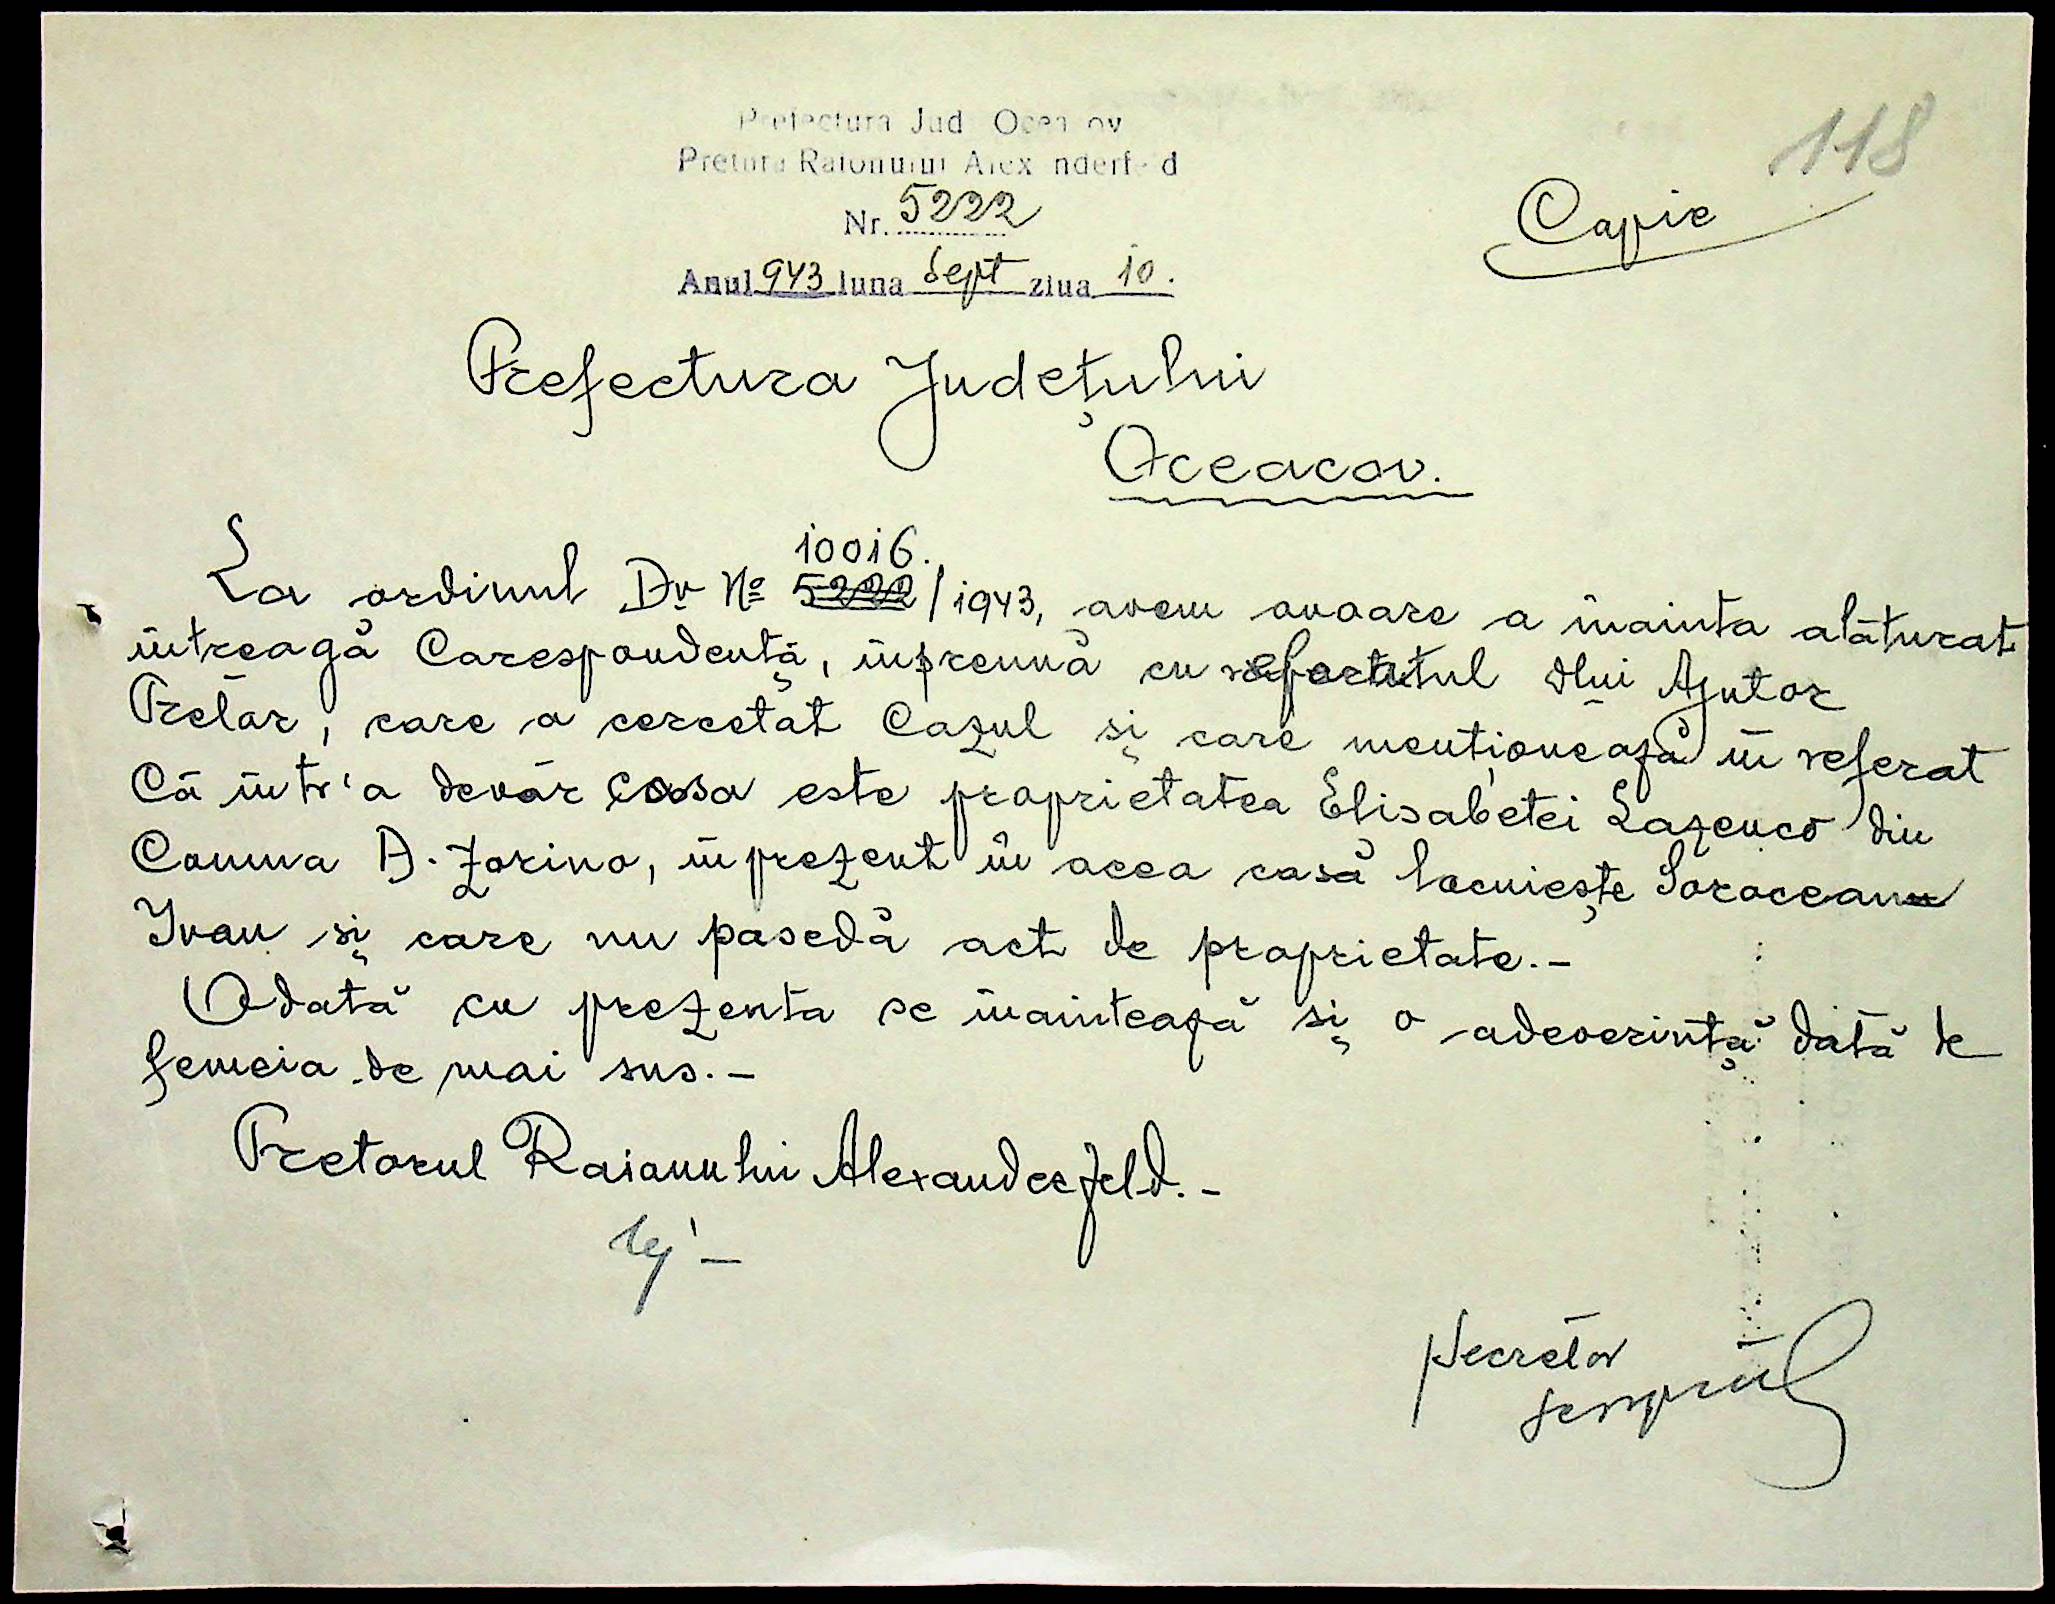 118
Prefectura Jud Ocea ov
Pretura Raionului Alex nderfe d
Nr. 5222
Anul 943 luna Sept ziua 10.
Copie
Prefectura Județului
Oceacov.
10016.
La ordinul Dv No 5222/1943, avem onoare a înainta alăturat
întreagă Corespondență, înpreună cu referatul dlui Ajutor
Pretor, care a cercetat Cazul și care menționează în referat
Că într'a devăr casa este proprietatea Elisabetei Lazenco din
Comuna A. Zorino, în prezent în acea casă locuiește Soroceanu
Ivan și care nu posedă act de proprietate.-
Odată cu prezenta se înaintează și o adeverință dată de
femeia de mai sus.-
Pretorul Raionului Alexanderfeld.-
Secretar